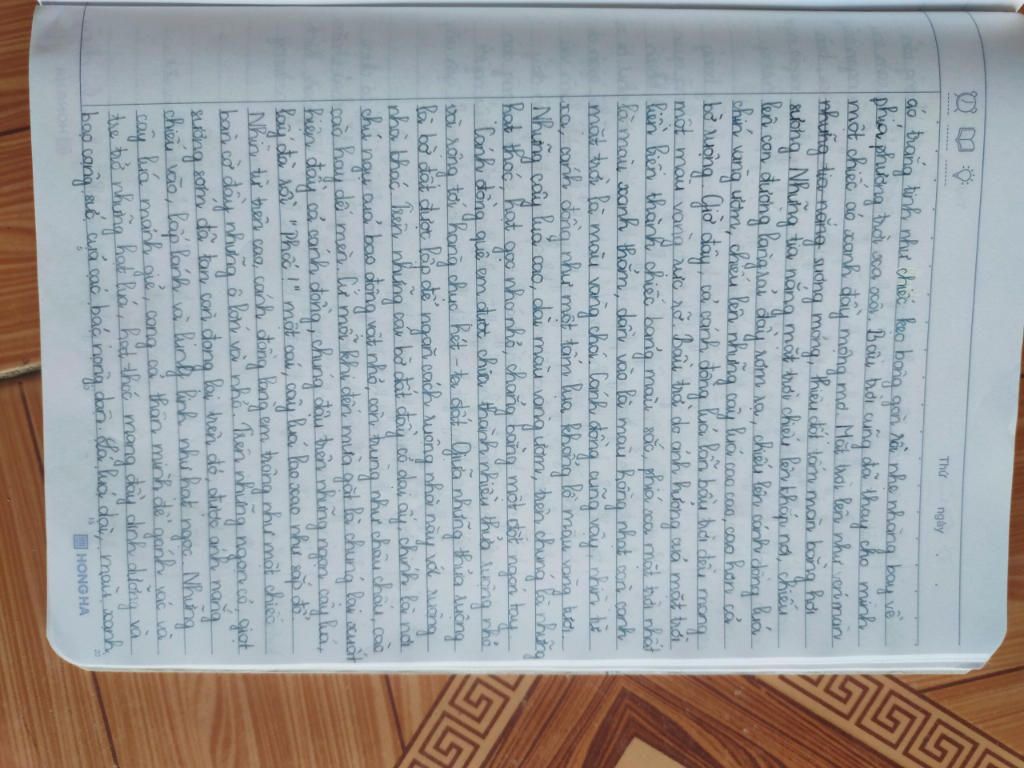 Thứ ngày
áo trắng tinh như chiếc kẹo bông gòn rồi nhẹ nhàng bay về
phía phương trời xa xôi. Bầu trời cũng đã thay cho mình
một chiếc áo xanh đầy mộng mơ. Mặt trời lên như vén màn
những tia nắng sương mỏng, thiêu đốt tấm màn bằng hơi
sương. Những tia nắng mặt trời chiếu lên khắp nơi, chiếu
lên con đường làng rải đầy rơm rạ, chiếu lên cánh đồng lúa
chín vàng ươm, chiếu lên những cây lúa cao cao, cao hơn cả
bờ ruộng. Giờ đây, cả cánh đồng lúa lẫn bầu trời đều mang
một màu vàng rực rỡ. Bầu trời do ảnh hưởng của mặt trời,
liền biến thành chiếc bảng màu sắc, phía xa mặt trời nhất
là màu xanh thẳm, dần vào là màu hồng nhạt còn cạnh
mặt trời là màu vàng chói. Cánh đồng cũng vậy, nhìn từ
xa, cánh đồng như một tấm lụa khổng lồ màu vàng tươi.
Những cây lúa cao, dài màu vàng ươm, trên chúng là những
hạt thóc, hạt gạo nho nhỏ, chẳng bằng một đốt ngón tay.
Cánh đồng quê em được chia thành nhiều thửa ruộng nhỏ
với rộng tới hàng chục héc-ta đất. Giữa những thửa ruộng
là bờ đất được lắp để ngăn cách ruộng nhà này với ruộng
nhà khác. Trên những con bờ đất đầy cỏ dại ấy chính là nơi
chú ngụ của bao động vật nhỏ, côn trùng như châu chấu, cào
cào hay dế mèn. Cứ mỗi khi đến mùa gặt là chúng lại xuất
hiện đầy cả cánh đồng, chúng đậu trên những ngọn cây lúa,
lấy đà rồi "phốc!" một cái, cây lúa lao xao như sắp đổ.
Nhìn từ trên cao, cánh đồng làng em trông như một chiếc
bàn cờ đầy những ô lớn và nhỏ. Trên những ngọn cỏ, giọt
sương sớm đã tan còn đọng lại trên đó, được ánh nắng
chiếu vào, lấp lánh và lung linh như hạt ngọc. Những
cây lúa mảnh giẻ, cong cả thân mình để gánh vác và
che trở những hạt lúa, hạt thóc mang đầy dinh dưỡng và
bao công sức của các bác nông dân. lá lúa dài, màu xanh,
HONG HA